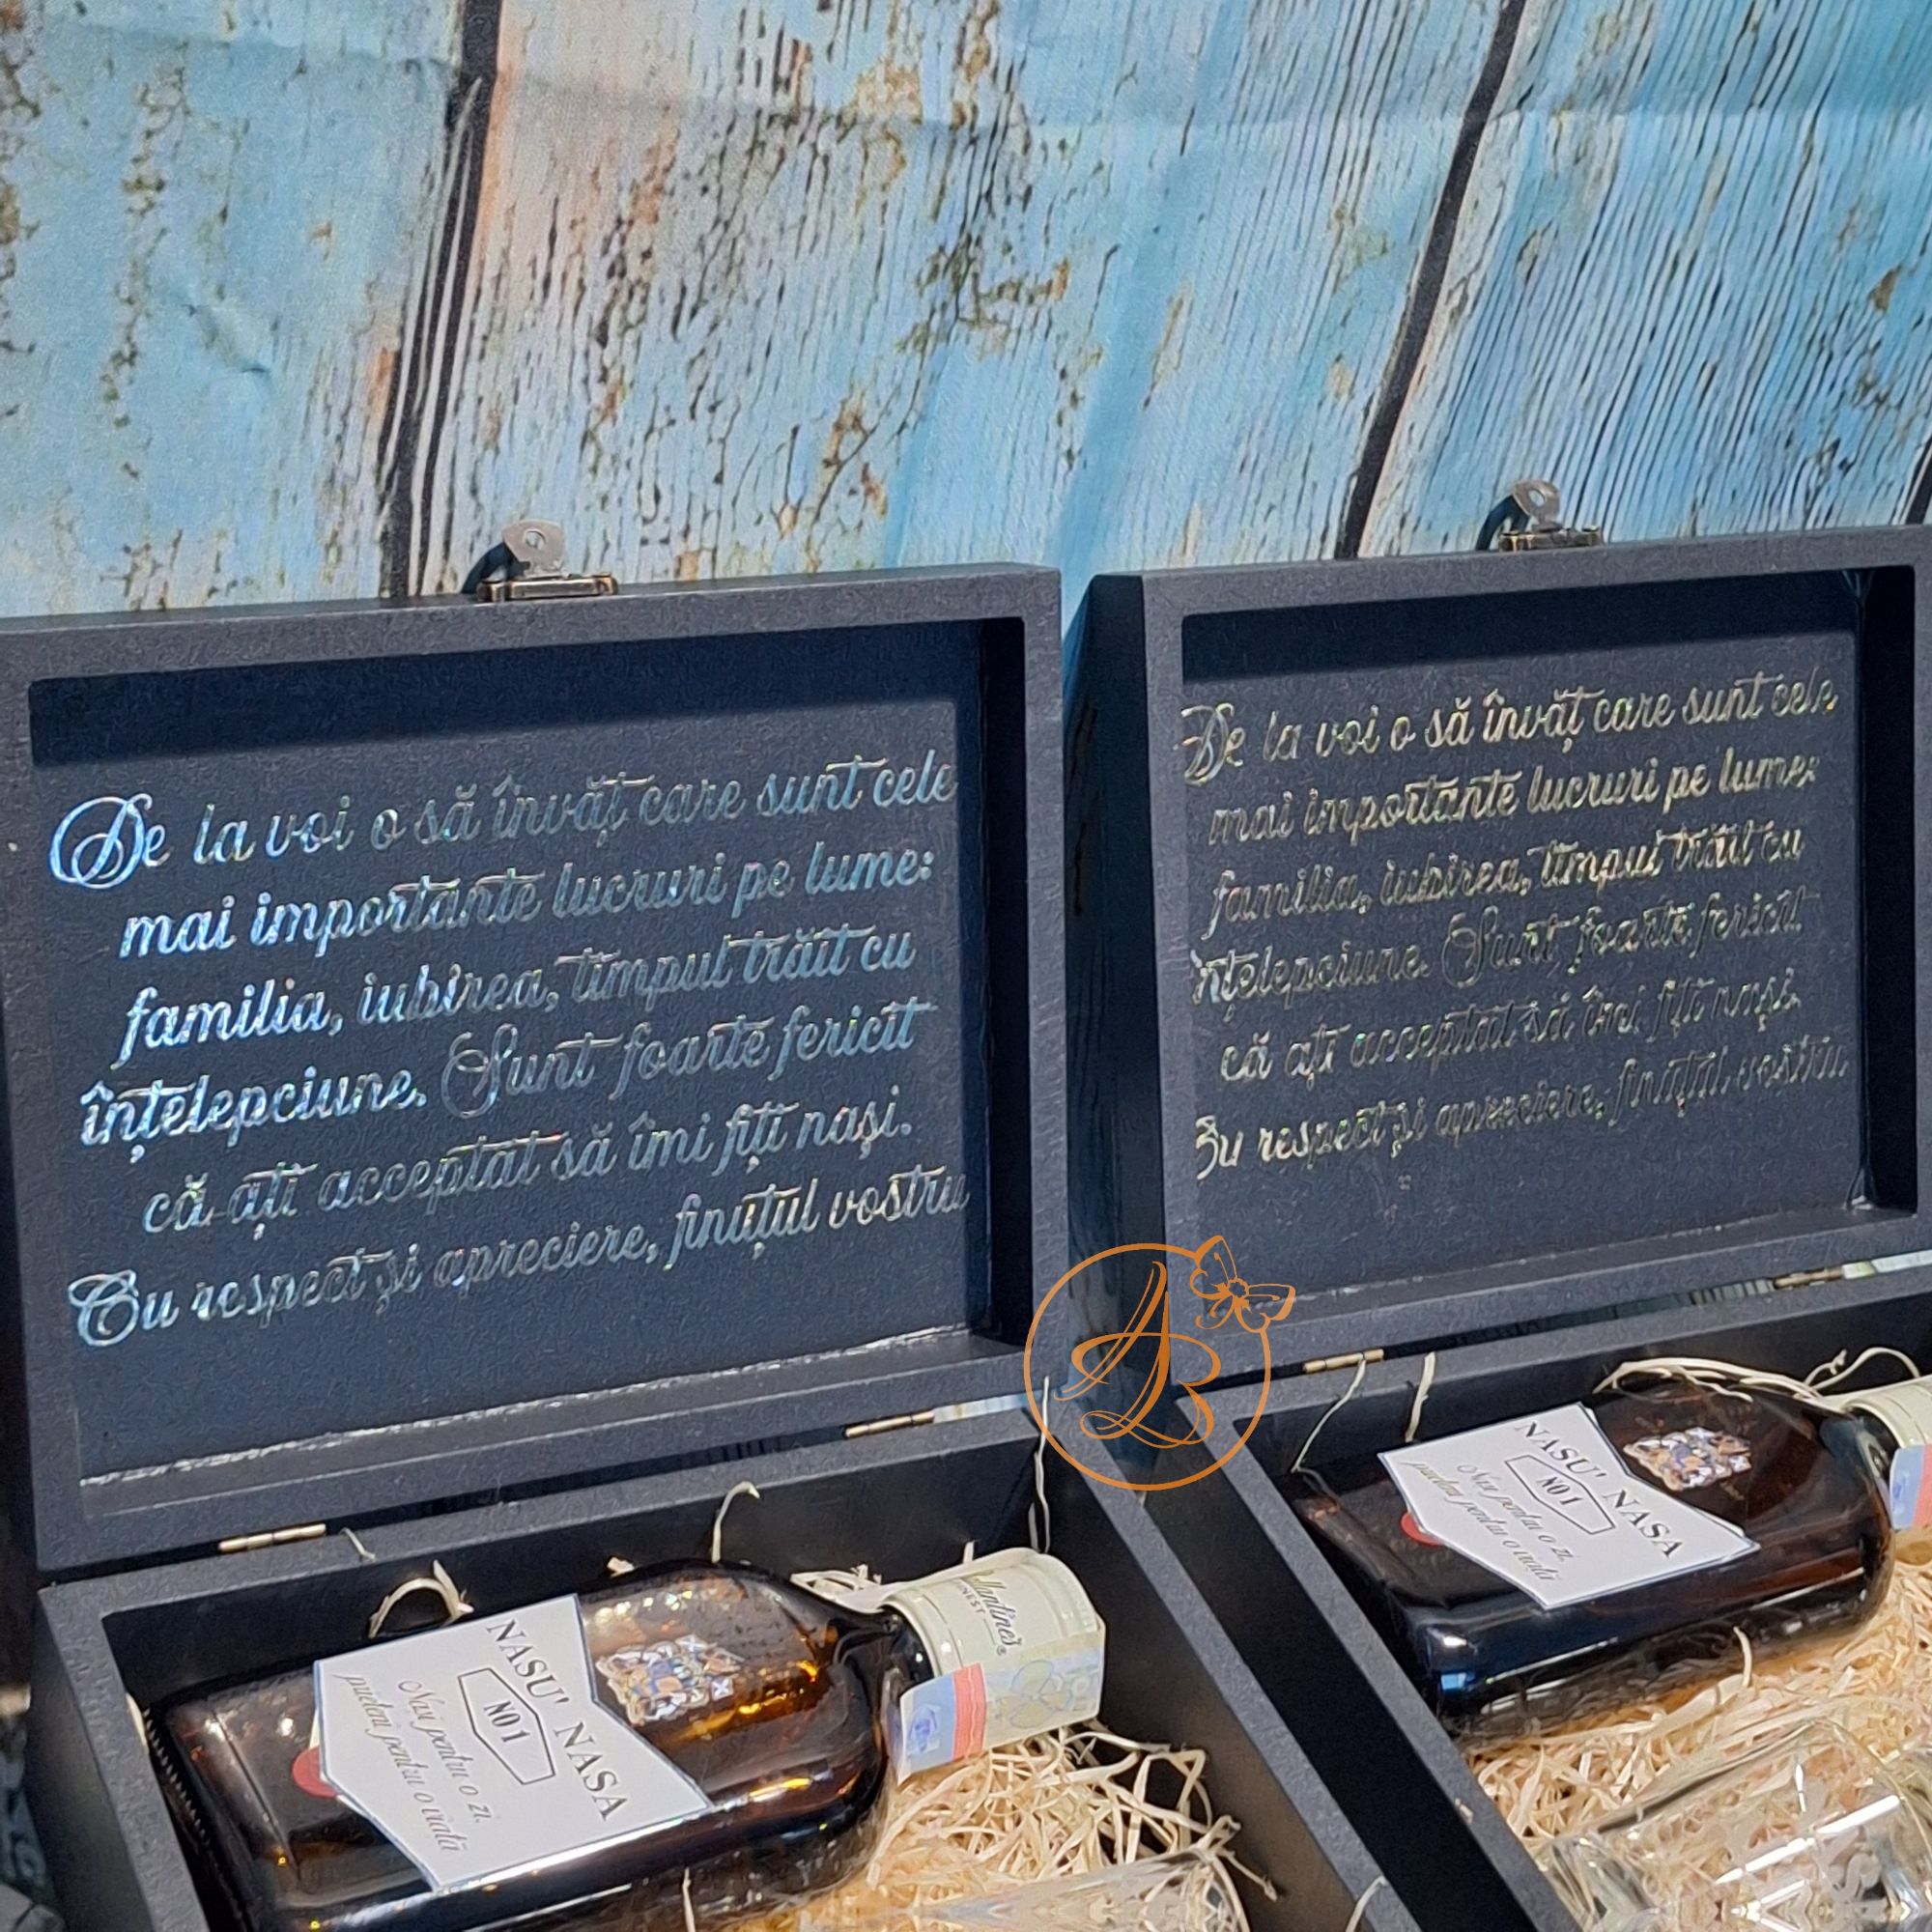 De la voi o să învăț care sunt cele
mai importante lucruri pe lume:
familia, iubirea, timpul trăit cu
înțelepciune. Sunt foarte fericit
că ați acceptat să îmi fiți nași.
Cu respect și apreciere, finuțul vostru
De la voi o să învăț care sunt cele
mai importante lucruri pe lume:
familia, iubirea, timpul trăit cu
înțelepciune. Sunt foarte fericit
că ați acceptat să îmi fiți nași.
Cu respect și apreciere, finuțul vostru
AB
NASU' NASA
NO1
Nasi pentru o zi,
prieteni pentru o viată
NASU' NASA
NO1
Nasi pentru o zi,
prieteni pentru o viată